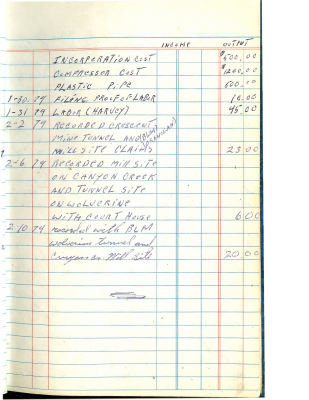 INCOME OUTPUT
INCORPORATION COST $500.00
COMPRESSOR COST $1200.00
PLASTIC PIPE 500.00
1-30-79 FILING PROOF OF LABOR 10.00
1-31 79 LABOR (HARVEY) 45.00
2-2 79 RECORDED CRESCENT
MINE TUNNEL AND
MILL SITE CLAIMS 23 00
2-6 79 RECORDED MILL SITE
ON CANYON CREEK
AND TUNNEL SITE
ON WOLVERINE
WITH COURT HOUSE 6 00
2 10 79 recorded with BLM
wolverine tunnel and
Canyon cr. Mill site 20.00